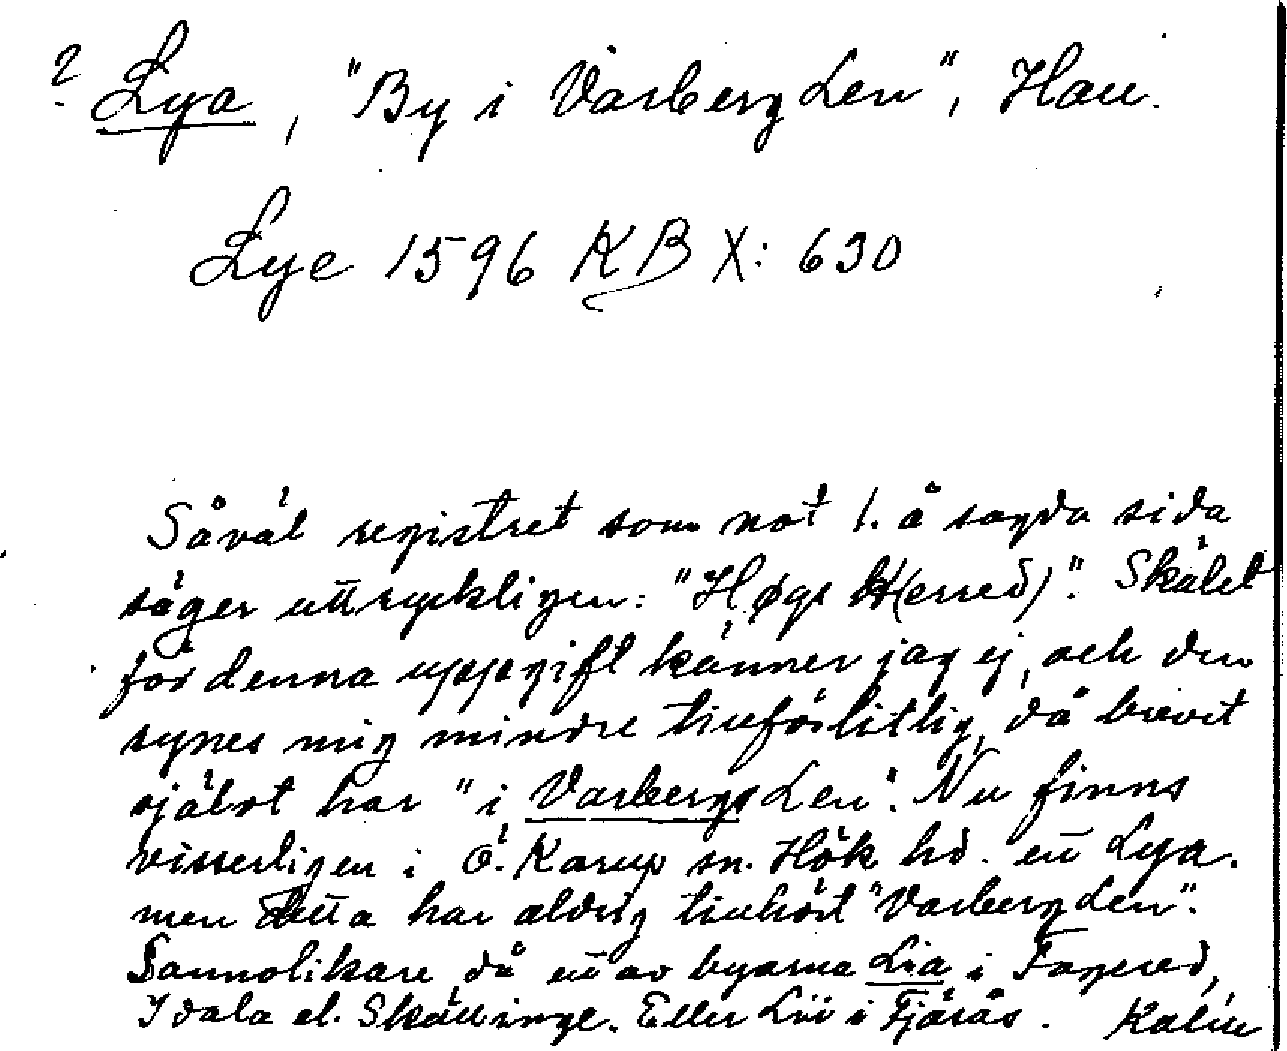 ? Lya, "By i Varberg Len", Hall.
Lye 1596 KB X: 630
Såväl registret som not 1. å sagda sida
säger uttryckligen: "Høgs H(erred)". Skälet
för denna uppgift känner jag ej, och den
synes mig mindre tillförlitlig, då brevet
självt har "i Varbergs Len". Nu finns
visserligen i Ö. Karup sn. Hök hd. ett Lya.
men detta har aldrig tillhört "Varberg Len".
Sannolikare då ett av byarna Lia i Fagered,
Idala el. Skällinge. Eller Lii i Fjärås. Kalén